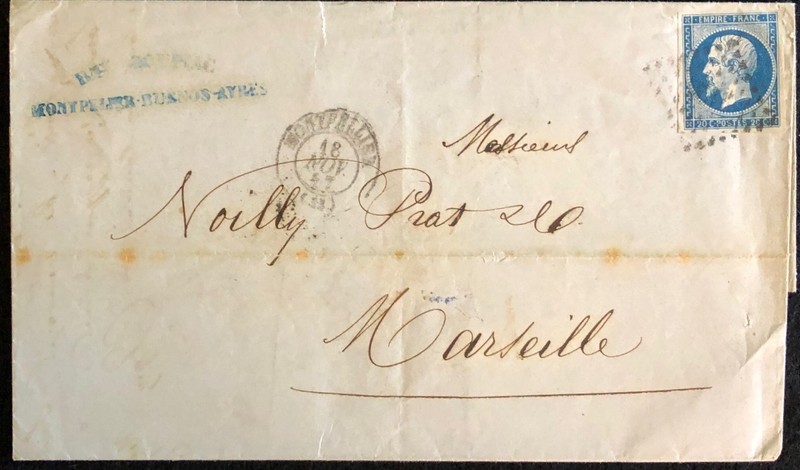 MONTPELLIER-BUENOS-AYRES
EMPIRE FRANC
20 C POSTES 20 C
MONTPELLIER
18
NOV.
57
(33)
Messieurs
Noilly Prat & Co.
Marseille